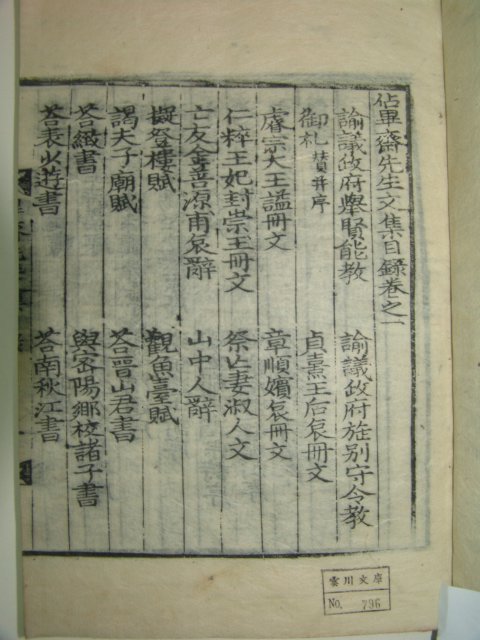 佔畢齋先生文集目錄卷之一
諭議政府擧賢能教
諭議政府旌別守令教
御札贊并序
貞熹王后哀冊文
睿宗大王謚冊文
章順嬪哀冊文
仁粹王妃封崇王冊文
祭亡妻淑人文
亡友金善源甫哀辭
山中人辭
擬登樓賦
觀魚臺賦
謁夫子廟賦
答晋山君書
答緻書
與密陽鄉校諸子書
答袁少遊書
答南秋江書
雲川文庫
No. 796